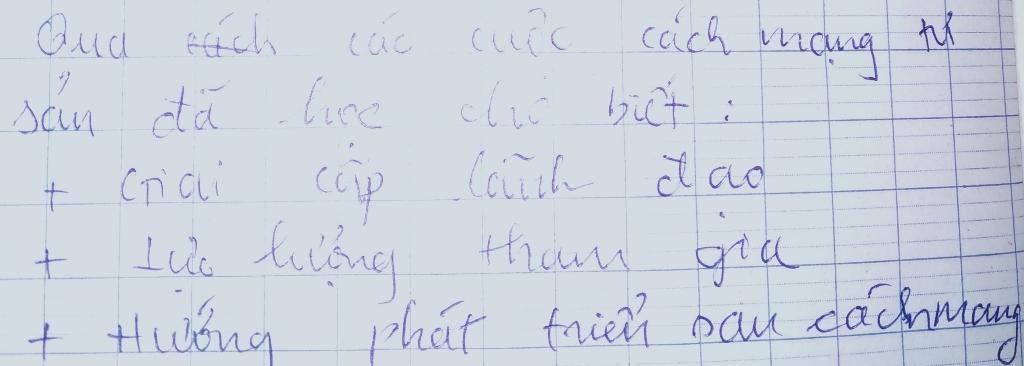 Qua cách các cuộc cách mạng tư
sản đã học cho biết :
+ Giai cấp lãnh đạo
+ Lực lượng tham gia
+ Hướng phát triển sau cách mạng